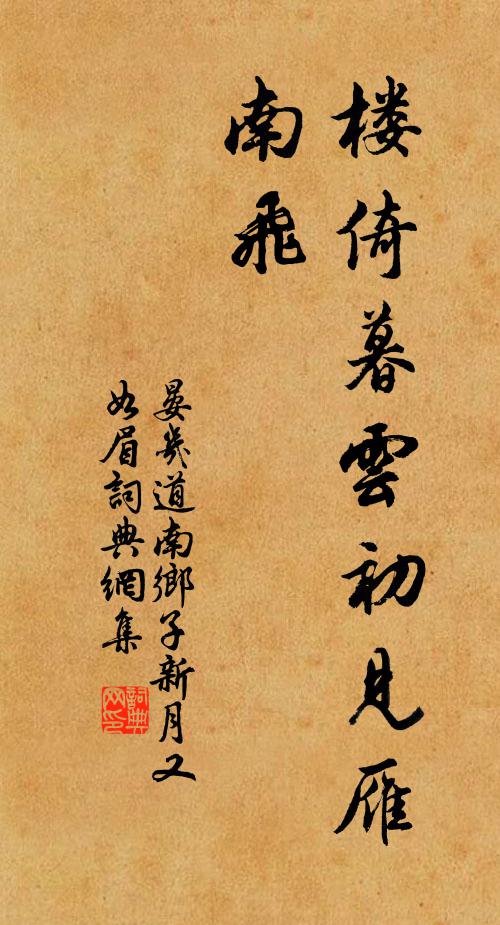 楼倚暮雲初見雁
南飛
晏幾道南鄉子新月又
如眉詞典網集
詞典
网印